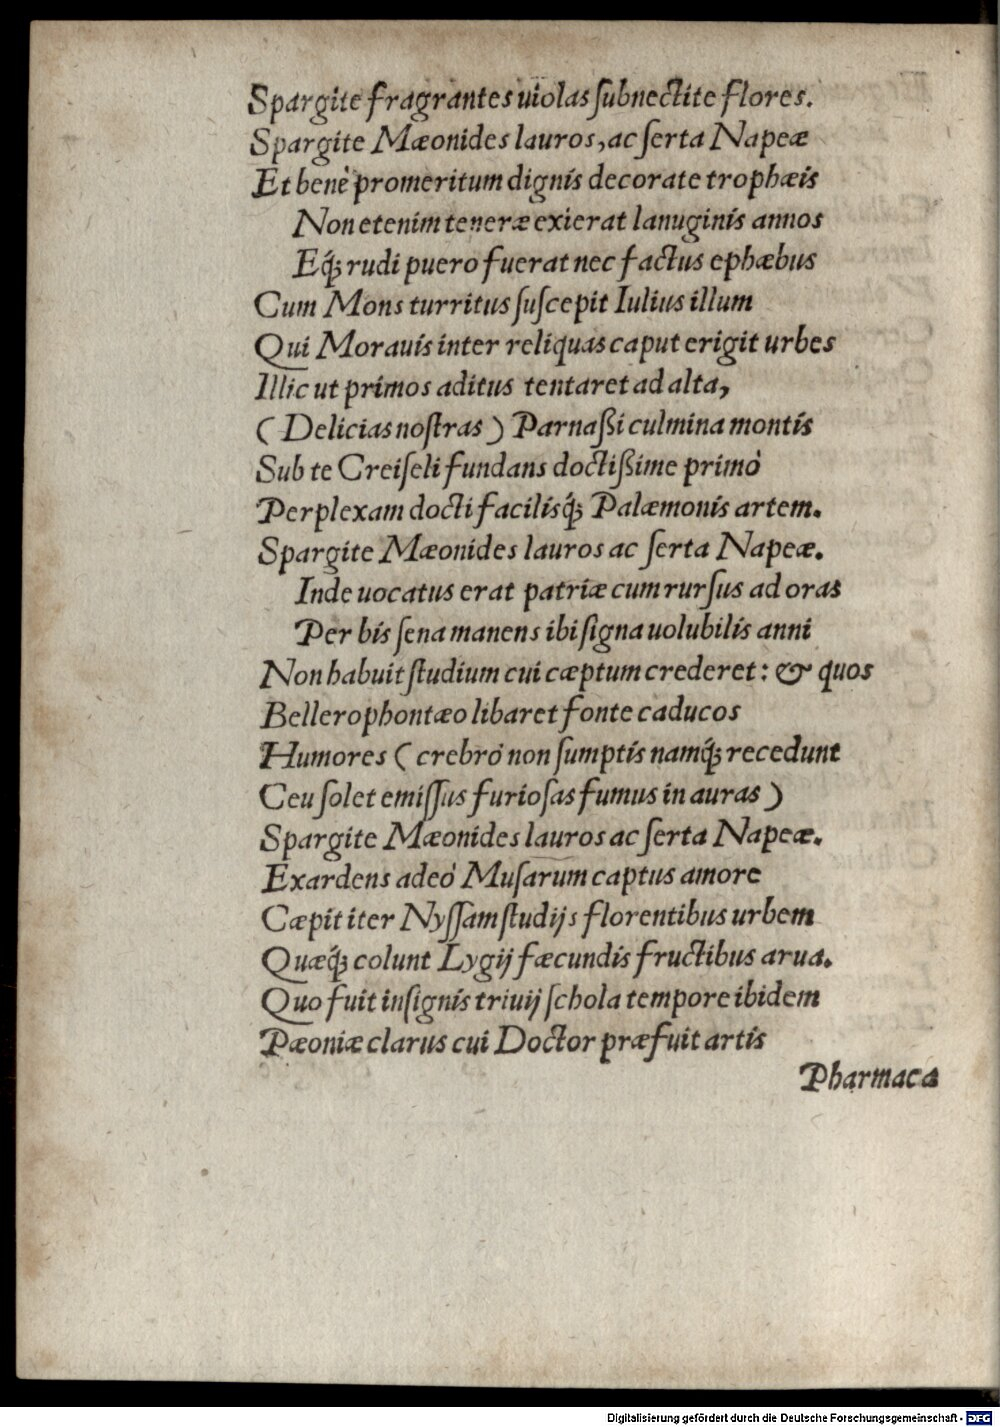 Spargite fragrantes uiolas ſubnectite flores.
Spargite Mæonides lauros, ac ſerta Napeæ
Et benè promeritum dignis decorate trophæis
Non etenim teneræ exierat lanuginis annos
Eq́ꝫ rudi puero fuerat nec factus ephæbus
Cum Mons turritus ſuſcepit Iulius illum
Qui Morauis inter reliquas caput erigit urbes
Illic ut primos aditus tentaret ad alta,
( Delicias noſtras ) Parnaßi culmina montis
Sub te Creiſeli fundans doctißime primò
Perplexam docti facilisq́ꝫ Palæmonis artem.
Spargite Mæonides lauros ac ſerta Napeæ.
Inde uocatus erat patriæ cum rurſus ad oras
Per bis ſena manens ibi ſigna uolubilis anni
Non habuit ſtudium cui cæptum crederet: & quos
Bellerophontæo libaret fonte caducos
Humores ( crebrò non ſumptis namq́ꝫ recedunt
Ceu ſolet emiſſus furioſas fumus in auras )
Spargite Mæonides lauros ac ſerta Napeæ.
Exardens adeò Muſarum captus amore
Cæpit iter Nyſſam ſtudijs florentibus urbem
Quæq́ꝫ colunt Lygij fæcundis fructibus arua.
Quo fuit inſignis triuij ſchola tempore ibidem
Pæoniæ clarus cui Doctor præfuit artis
Pharmaca
Digitalisierung gefördert durch die Deutsche Forschungsgemeinschaft - DFG